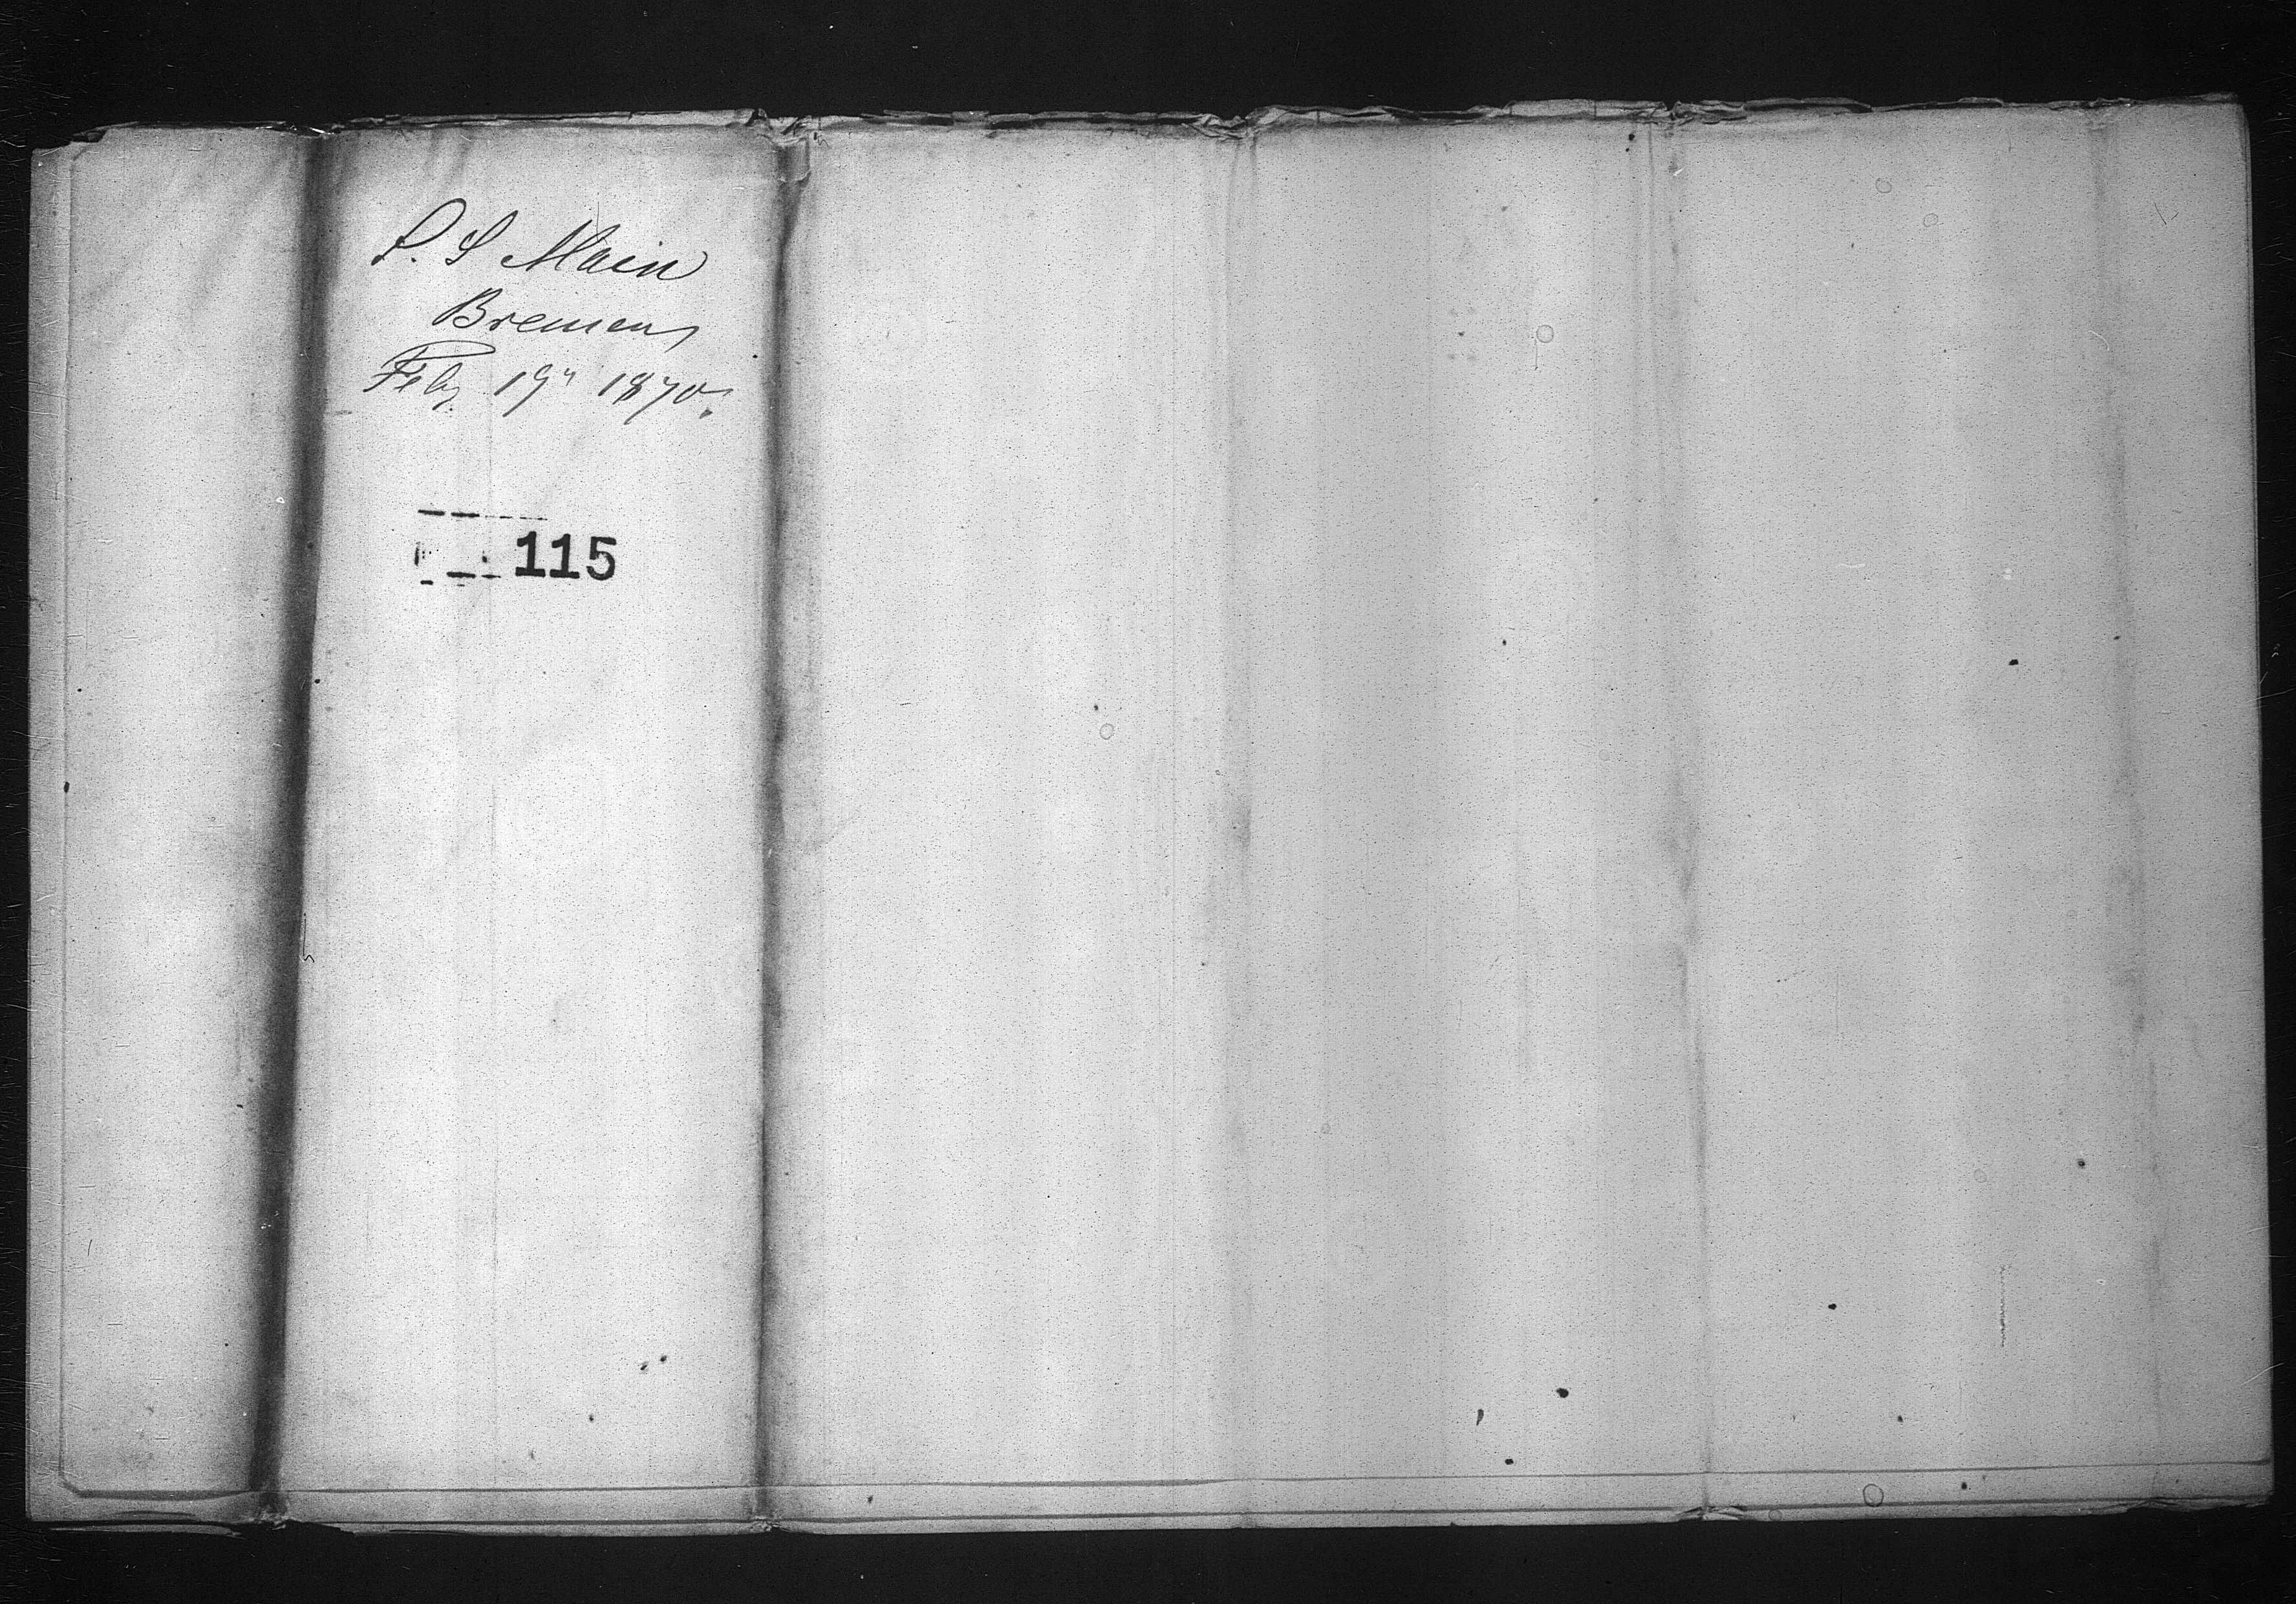 S. S Main
Bremen
Feby 19" 1870.
115